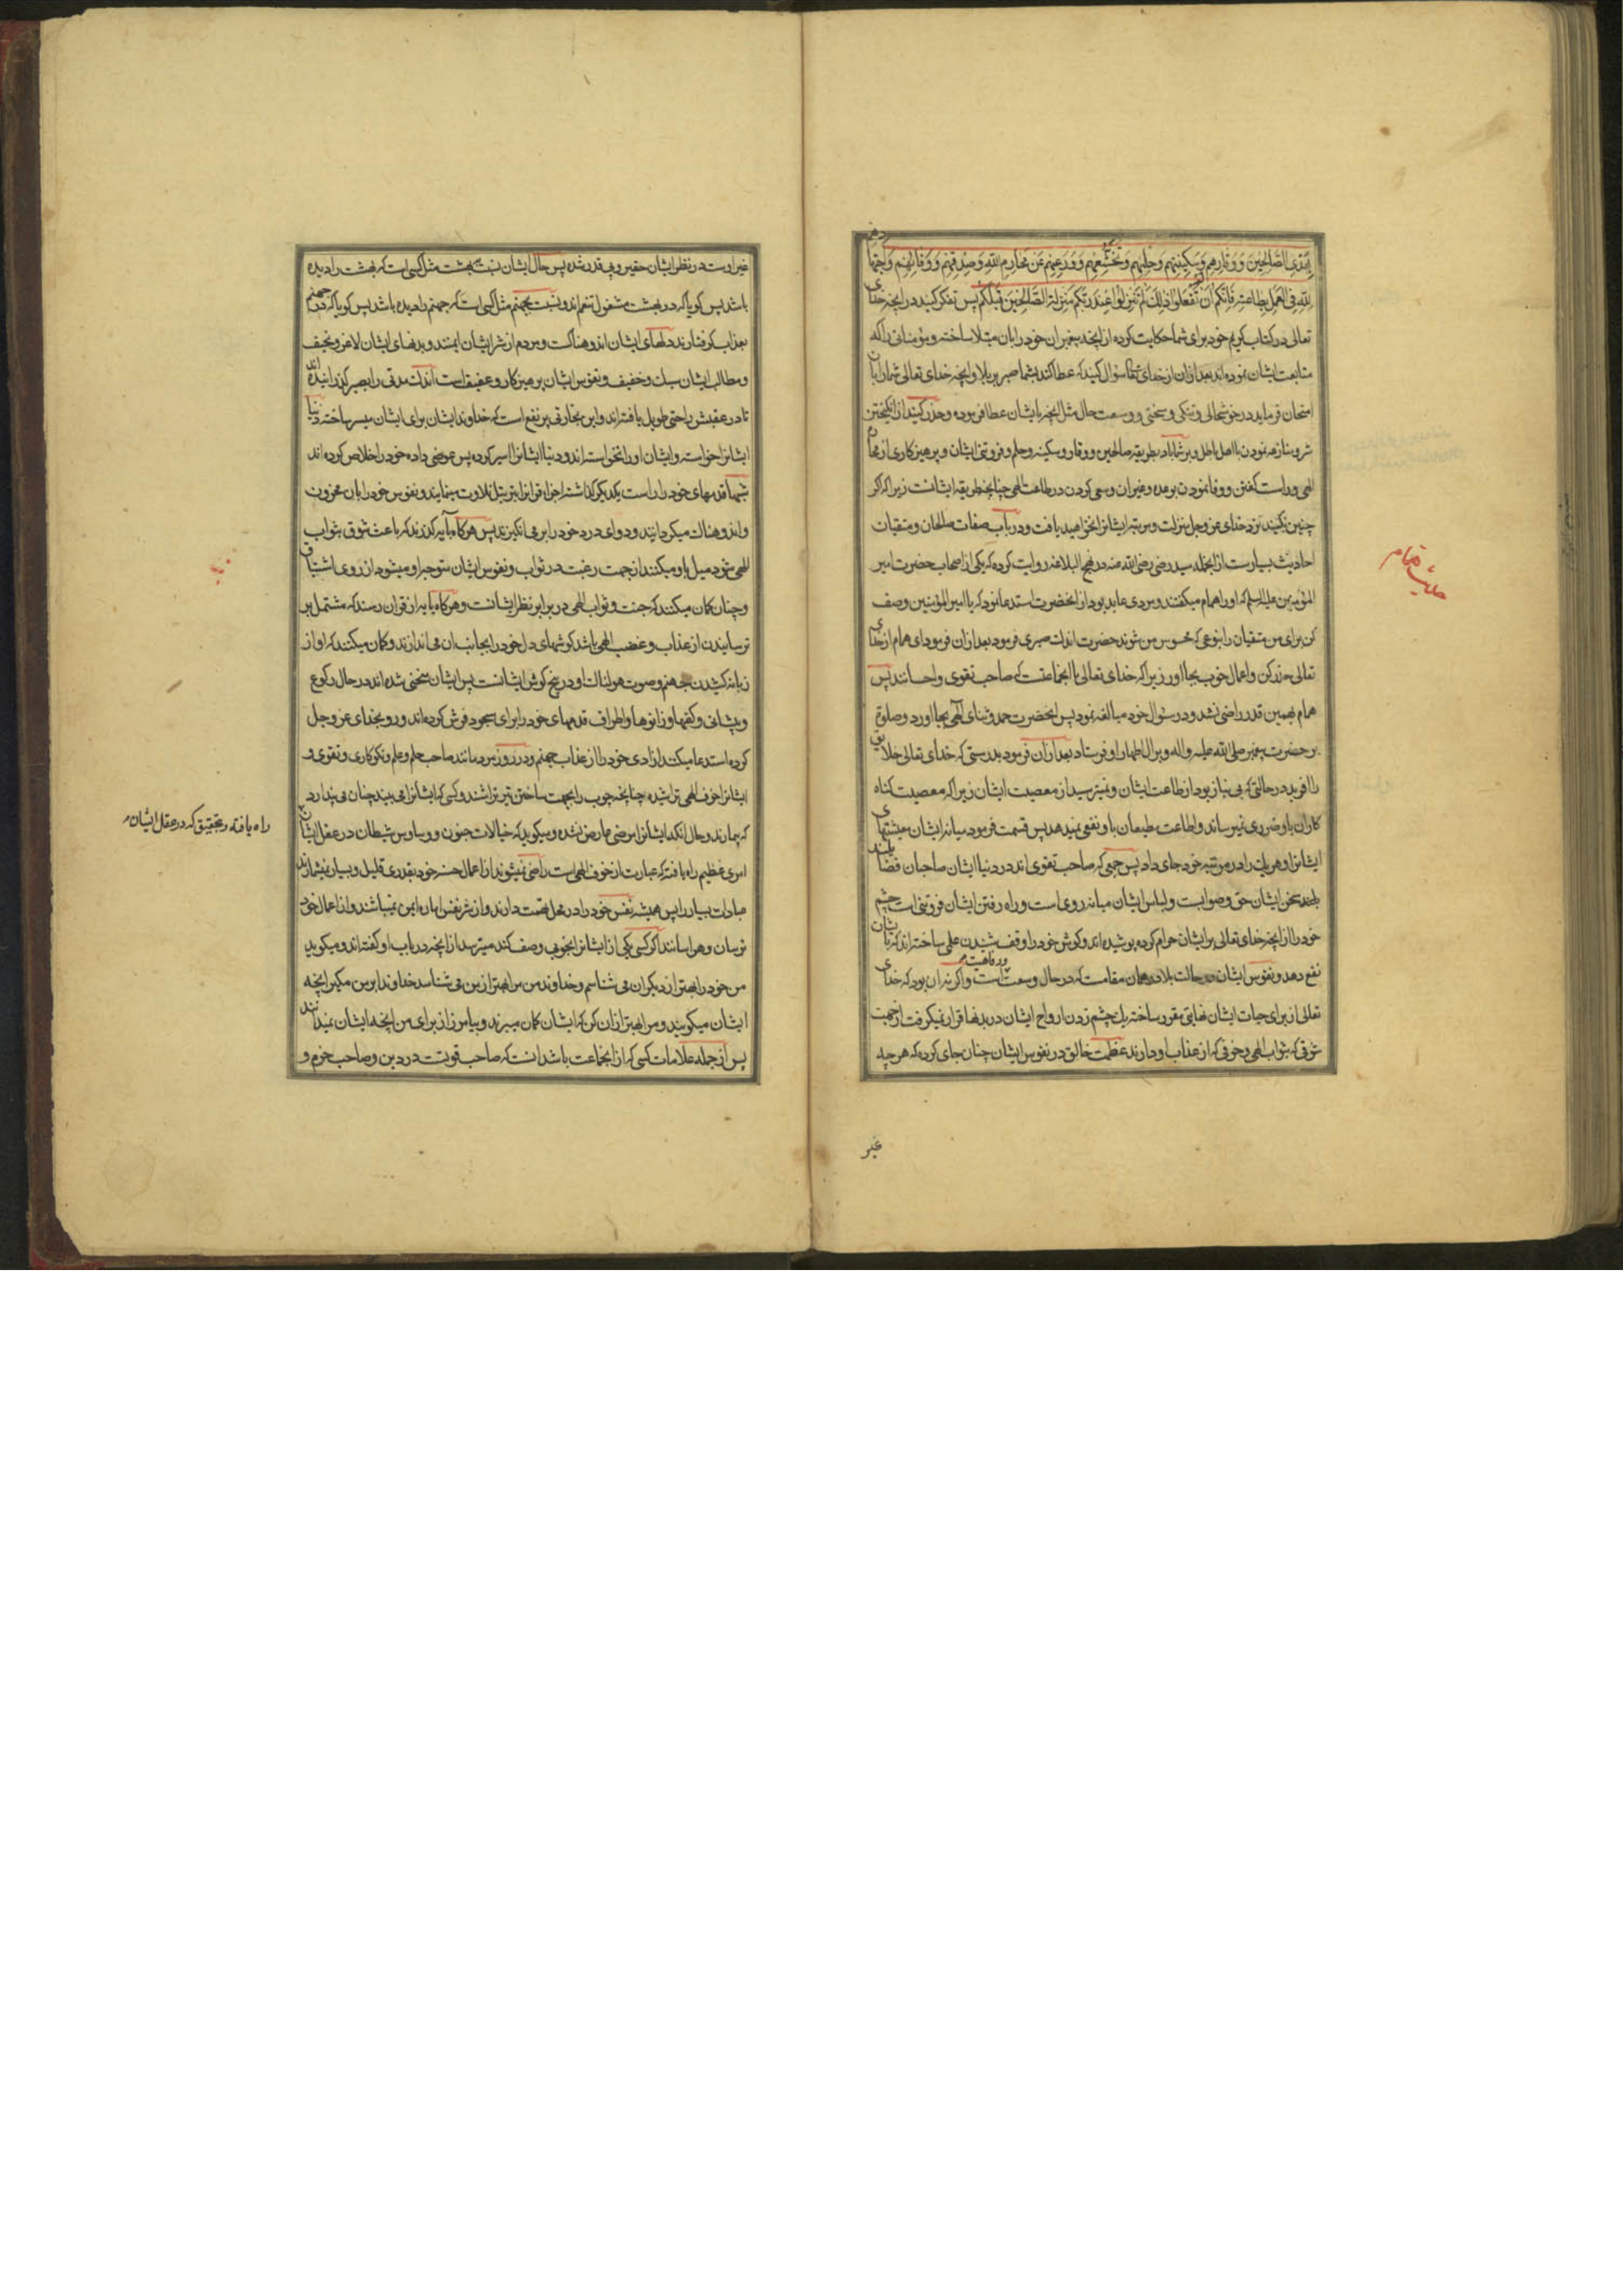 بِهَدْیِ الصَّالِحِینَ وَوَقَارِهِم وَسَکِینَتِهِم وَحِلمِهِم وَتَخَشُّعِهِم وَوَرَعِهِم عَن مَحَارِمِ اللهِ وَصِدقِهِم وَوَفَائِهِم وَاجتِهَادِهِم
لِلّٰهِ فِی العَمَلِ بِطَاعَتِهِ فَاِنَّکُم اِن لَم تَفعَلُوا ذٰلِکَ لَم تُنزَلُوا عِندَ رَبِّکُم مَنزِلَةَ الصَّالِحِینَ قَبلَکُم پس تفکر کنید در آنچه خدای
تعالی در کتاب کریم خود برای شما حکایت کرده از آنچه پیغمبران خود را بآن مبتلا ساخته و مؤمنانی را که
متابعت ایشان نموده اند بعد از آن از خدای تعالی سؤال کنید که عطا کند بشما صبر بر بلا و آنچه خدای تعالی شما را بآن
امتحان فرماید در خوشحالی و تنگی و سختی و وسعت حال مثل آنچه بایشان عطا فرموده و حذر کنید از انگیختن
شر و منازعه نمودن با اهل باطل و بر شما باد بطریقه صالحین و وقار و سکینه و حلم و فروتنی ایشان و پرهیزکاری از محارم
الهی و راست گفتن و وفا نمودن بوعده و غیر آن و سعی کردن در طاعت الهی چنانچه طریقه ایشانست زیرا که اگر
چنین نکنید نزد خدای عز و جل منزلت و مرتبه ایشانرا نخواهید یافت و در باب صفات صالحان و متقیان
احادیث بسیارست از آنجمله سید رضی رضی الله عنه در نهج البلاغه روایت کرده که یکی از اصحاب حضرت امیر
المؤمنین علیه السلم که او را همام میگفتند و مردی عابد بود از آنحضرت استدعا نمود که یا امیرالمؤمنین وصف
کن برای من متقیان را بنوعی که محسوس من شوند حضرت اندک صبری فرمود بعد از آن فرمود ای همام از خدای
تعالی حذر کن و اعمال خوب بجا آور زیرا که خدای تعالی با آنجماعتست که صاحب تقوی و احسانند پس
همام بهمین قدر راضی نشد و در سؤال خود مبالغه نمود پس آنحضرت حمد و ثنای الهی بجا آورد و صلوة
بر حضرت پیغمبر صلی الله علیه و اله و بر ال اطهار او فرستاد بعد از آن فرمود بدرستی که خدای تعالی خلایق
را آفرید در حالتی که بی نیاز بود از طاعت ایشان و نمیترسید از معصیت ایشان زیرا که معصیت گناه
کاران باو ضرری نمیرساند و اطاعت مطیعان باو نفعی نمیدهد پس قسمت فرمود میانه ایشان معیشتهای
ایشانرا و هر یک را در مرتبه خود جای داد پس جمعی که صاحب تقوی اند در دنیا ایشان صاحبان فضایلند
سخن ایشان حق و صوابست و لباس ایشان میانه روی است و راه رفتن ایشان فروتنی است چشم
خود را از آنچه خدای تعالی بر ایشان حرام کرده پوشیده اند و گوش خود را وقف شنیدن علمی ساخته اند که بایشان
نفع دهد و نفوس ایشان در حالت بلا در همان مقامست که در حال وسعت است و اگر نه آن بود که خدای
و رفاهیت
تعالی از برای حیات ایشان نهایتی مقرر ساخته یک چشم زدن ارواح ایشان در بدنها قرار نمیگرفت از جهت
شوقی که بثواب الهی و خوفی که از عذاب او دارند عظمت خالق در نفوس ایشان چنان جای کرده که هر چه
غیر
حدیث همام
غیر اوست در نظر ایشان حقیر و بی قدر شده پس حال ایشان نسبت ببهشت مثل کسی است که بهشت را دیده
باشد پس گویا که در بهشت مشغول تنعم اند و نسبت بجهنم مثل کسی است که جهنم را دیده باشد پس گویا که در جهنم
بعذاب گرفتارند دلهای ایشان اندوهناکست و مردم از شر ایشان ایمنند و بدنهای ایشان لاغر و نحیف
و مطالب ایشان سبک و خفیف و نفوس ایشان پرهیزکار و عفیف است اندک مدتی را بصبر گذرانیده اند
تا در عقبش راحتی طویل یافته اند و این تجارتی پر نفع است که خداوند ایشان برای ایشان میسر ساخته دنیا
ایشانرا خواسته و ایشان او را نخواسته اند و دنیا ایشانرا اسیر کرده پس عوض داده خود را خلاص کرده اند
شبها قدمهای خود را راست یکدیگر گذاشته اجزاء قرآنرا بترتیل تلاوت مینمایند و نفوس خود را بآن محزون
و اندوهناک میگردانند و دوای درد خود را بر می انگیزند پس هر گاه بآیه گذرند که باعث شوق بثواب
الهی شود میل باو میکنند از جهت رغبت در ثواب و نفوس ایشان متوجه او میشود از روی اشتیاق
و چنان گمان میکنند که جنت و ثواب الهی در برابر نظر ایشانست و هر گاه بآیه از قرآن رسند که مشتمل بر
ترسانیدن از عذاب و غضب الهی باشد گوشهای دل خود را بجانب آن می اندازند و گمان میکنند که آواز
زبانه کشیدن جهنم و صوت هولناک او در بیخ گوش ایشانست پس ایشان منحنی شده اند در حال رکوع
و پیشانی و کفها و زانوها و اطراف قدمهای خود را برای سجود فرش کرده اند و رو بخدای عز و جل
کرده استدعا میکنند آزادی خود را از عذاب جهنم و در روز مردمانند صاحب حلم و علم و نکوکاری و تقوی و
ایشانرا خوف الهی تراشیده چنانچه چوب را بجهت ساختن تیر تراشند و کسی که ایشانرا می بیند چنان می پندارد
که بیمارند و حال آنکه ایشانرا مرضی عارض نشده و میگوید که خیالات جنون و وساوس شیطان در عقل ایشان
راه یافته و بتحقیق که در عقل ایشان
امری عظیم راه یافته که عبارت از خوف الهی است راضی نمیشوند از اعمال حسنه خود بقدری قلیل و بسیار نمیشمارند
عبادات بسیار را پس همیشه نفس خود را در محل تهمت دارند و از شر نفس اماره ایمن نمیباشند و از اعمال خود
ترسان و هراسانند اگر کسی یکی از ایشانرا بخوبی وصف کند میترسد از آنچه در باب او گفته اند و میگوید
من خود را بهتر از دیگران می شناسم و خداوند من مرا بهتر از من می شناسد خداوندا بر من مگیر آنچه
ایشان میگویند و مرا بهتر از آن کن که ایشان گمان میبرند و بیامرز از برای من آنچه ایشان نمیدانند
پس از جمله علامات کسی که از آنجماعت باشد آنست که صاحب قوتست در دین و صاحب حزم و